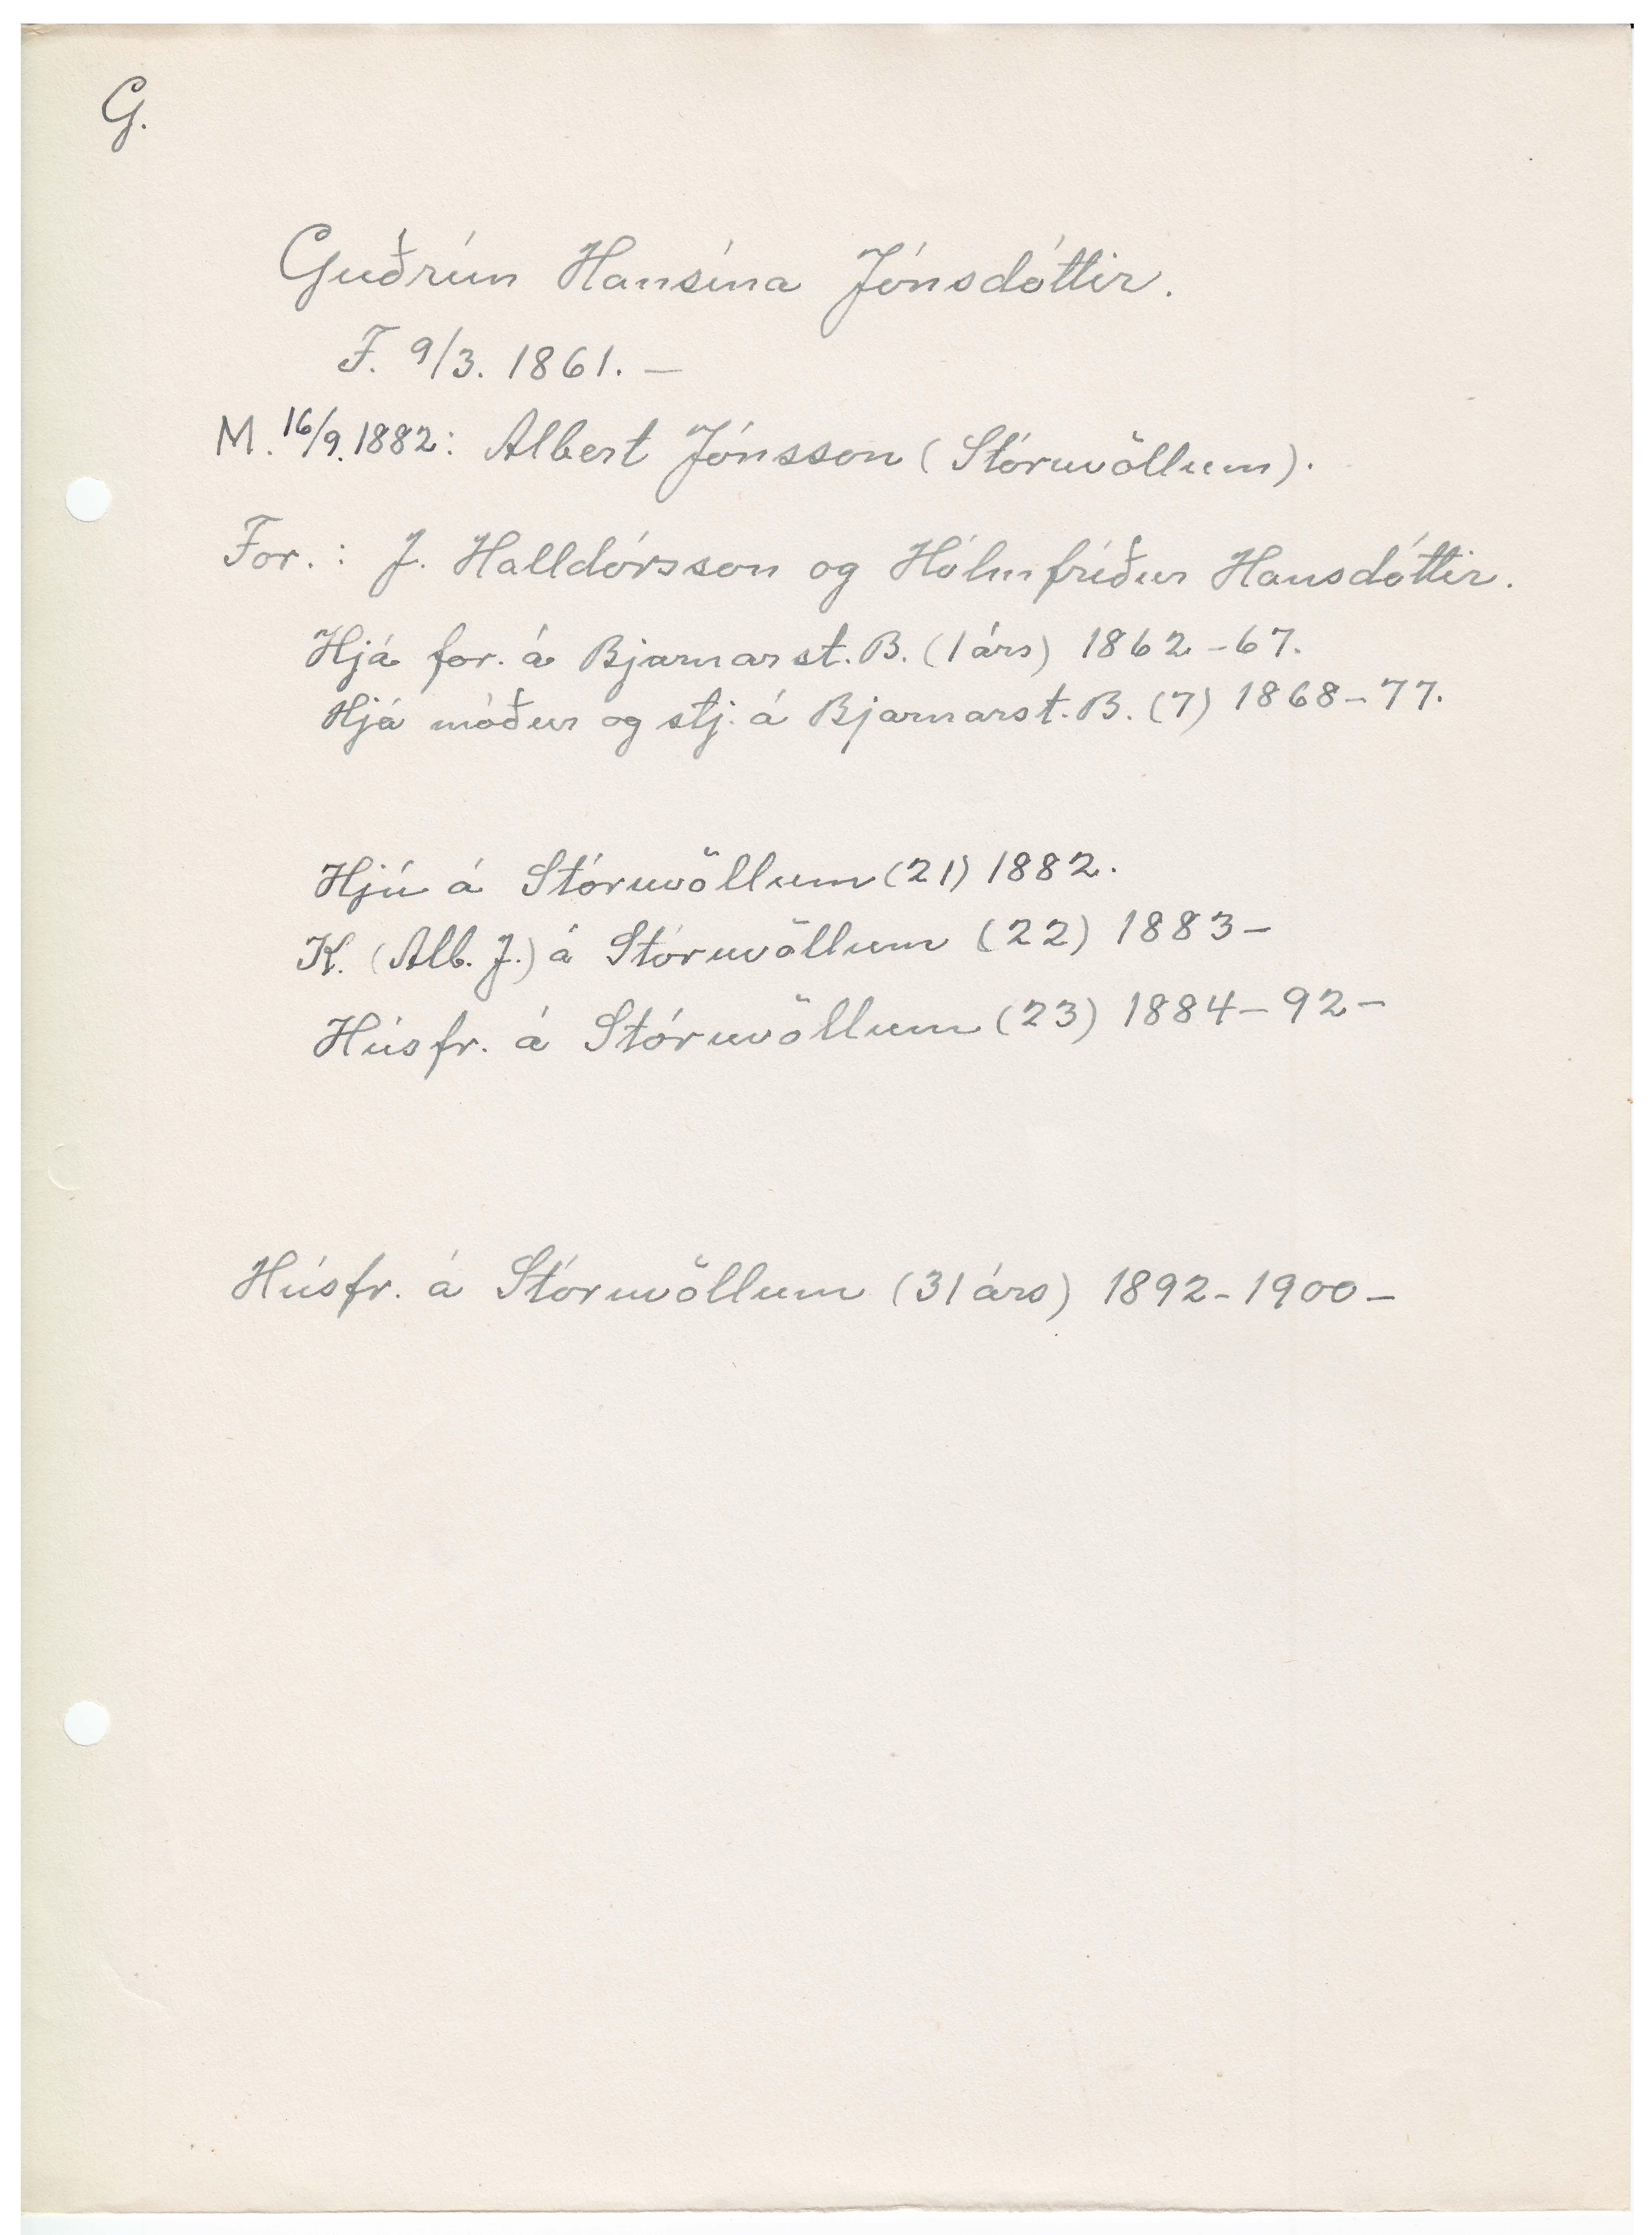 G.
Guðrún Hansína Jónsdóttir.
F. 9/3. 1861. —
M. 16/9. 1882: Albert Jónsson (Stóruvöllum).
For. : J. Halldórsson og Hólmfríður Hansdóttir.
Hjá for. á Bjarnarst. B. (1 árs) 1862 - 67.
Hjá móður og stj. á Bjarnarst. B. (7) 1868 - 77.
Hjú á Stóruvöllum (21) 1882.
K. (Alb. J.) á Stóruvöllum (22) 1883 -
Húsfr. á Stóruvöllum (23) 1884 - 92 -
Húsfr. á Stóruvöllum (31 árs) 1892 - 1900 -